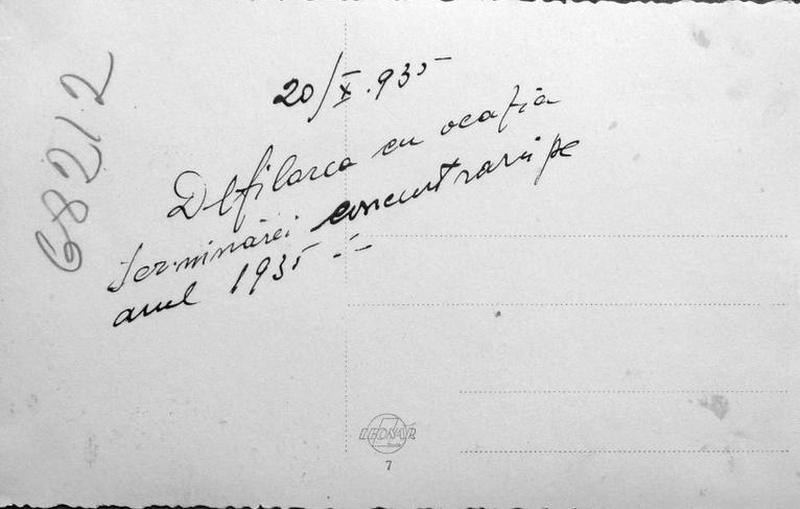 68212
20/X.935
Defilarea cu ocazia
terminărei concentrarii pe
anul 1935 -.-
LEONAR
7